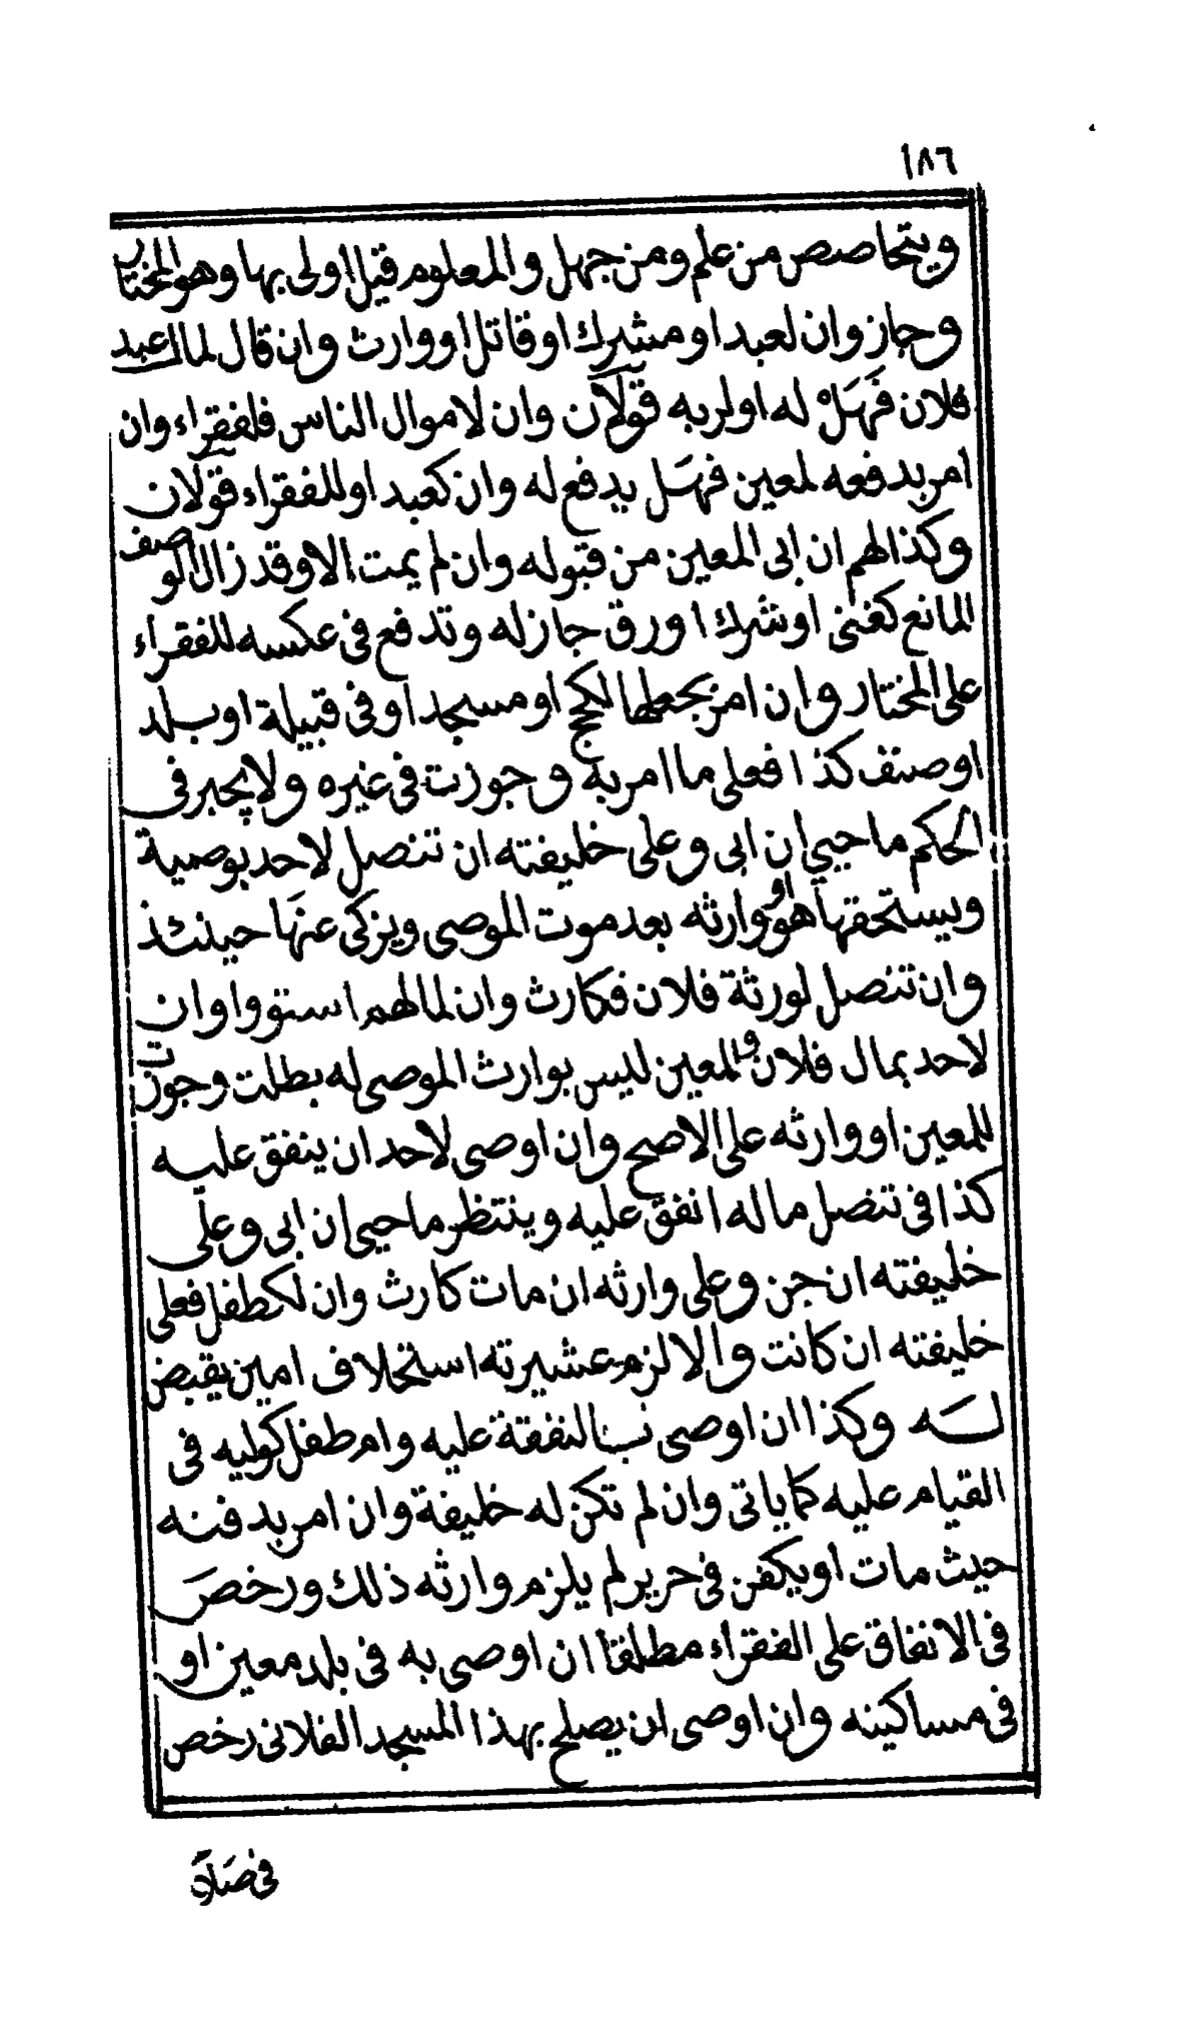 ١٨٦
ويتحاصص من علم ومن جهل والمعلوم قيل اولى بها وهو المختار
وجاز وان لعبد او مشرك او قاتل او وارث وان قال لمال عبد
فلان فهل له او لربه قولان وان لاموال الناس فلفقراء وان
امر بدفعه لمعين فهل يدفع له وان كعبد او للفقراء قولان
وكذا لهم ان ابى المعين من قبوله وان لم يمت الا وقد زال الوصف
المانع كغنى او شرك او رق جاز له وتدفع فى عكسه للفقراء
على المختار وان امر بحطها لكحج او مسجد او فى قبيلة او بلد
او صنف كذا فعلى ما امر به وجوزت فى غيره ولا يجبر فى
الحكم ما حيي ان ابى وعلى خليفته ان تنصل لاحد بوصية
ويستحقها هو او وارثه بعد موت الموصى ويزكى عنها حينئذ
وان تنصل لورثة فلان فكارث وان لما لهم استووا وان
لاحد بمال فلان والمعين ليس بوارث الموصى له بطلت وجوزت
للمعين او وارثه على الاصح وان اوصى لاحد ان ينفق عليه
كذا فى تنصل ماله انفق عليه وينتظر ما حيي ان ابى وعلى
خليفته ان جن وعلى وارثه ان مات كارث وان لكطفل فعلى
خليفته ان كانت والا لزم عشيرته استخلاف امين يقبض
له وكذا ان اوصى بالنفقة عليه وام طفل كوليه فى
القيام عليه كما ياتى وان لم تكن له خليفة وان امر بدفنه
حيث مات او يكفن فى حرير لم يلزم وارثه ذلك ورخص
فى الانفاق على الفقراء مطلقا ان اوصى به فى بلد معين او
فى مساكينه وان اوصى ان يصلح بهذا المسجد الفلانى رخص
فى صلاة